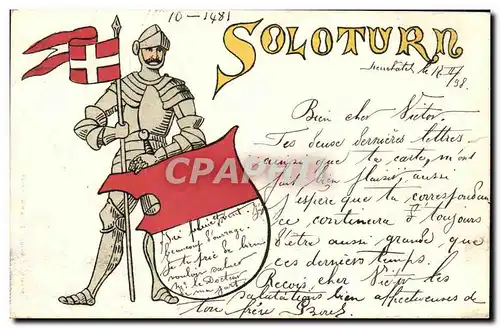 10-1481
SOLOTURN
Neuchâtel le 12/II/98.
Bien cher Victor.
Tes deuse dernières lettres
ainsi que ta carte, m'ont
fait bien plaisir, aussi
j'espère que ta correspondan
ce continuera à toujours
être aussi grande, que
ces derniers temps.
Reçois, cher Victor les
salutations bien affectueuses de
ton frère Boris.
CPARAMA
J'ai pleinement
beaucoup d'ouvrage.
Je te prie de bien
vouloir saluer
Mr. le Docteur
ma part.